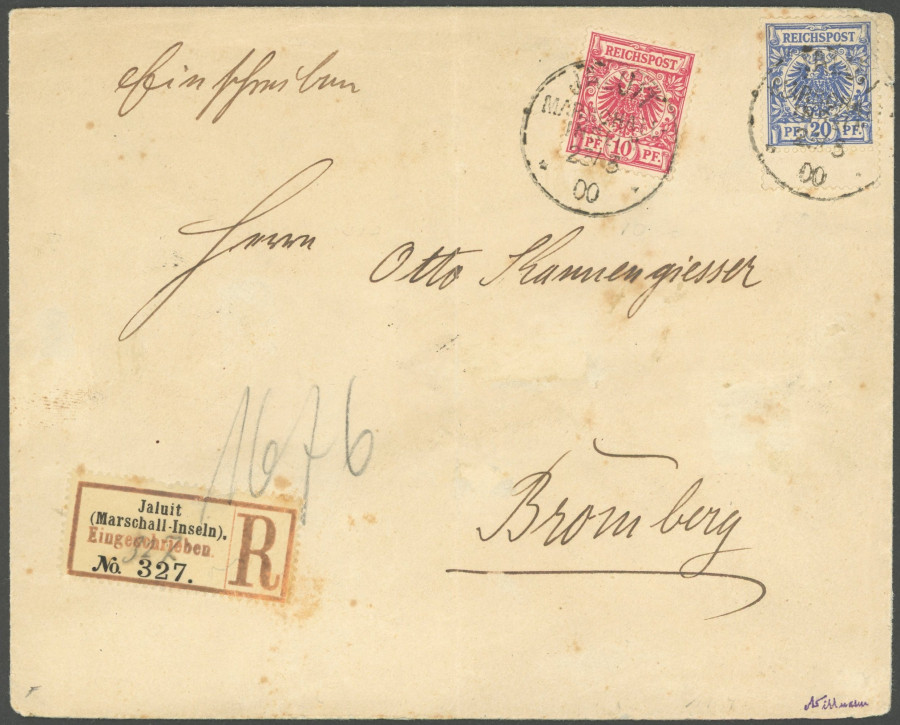 Einschreiben
REICHSPOST
PF. 10 PF.
REICHSPOST
PF. 20 PF.
00
00
Herrn
Otto Kannengiesser
1676
Bromberg
Jaluit
(Marschall-Inseln).
Eingeschrieben.
327
No. 327.
R